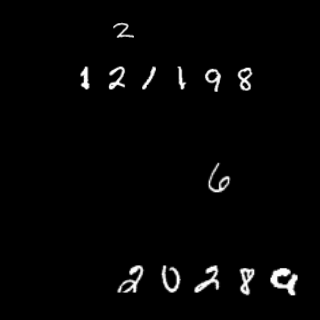 2
121198
6
20289